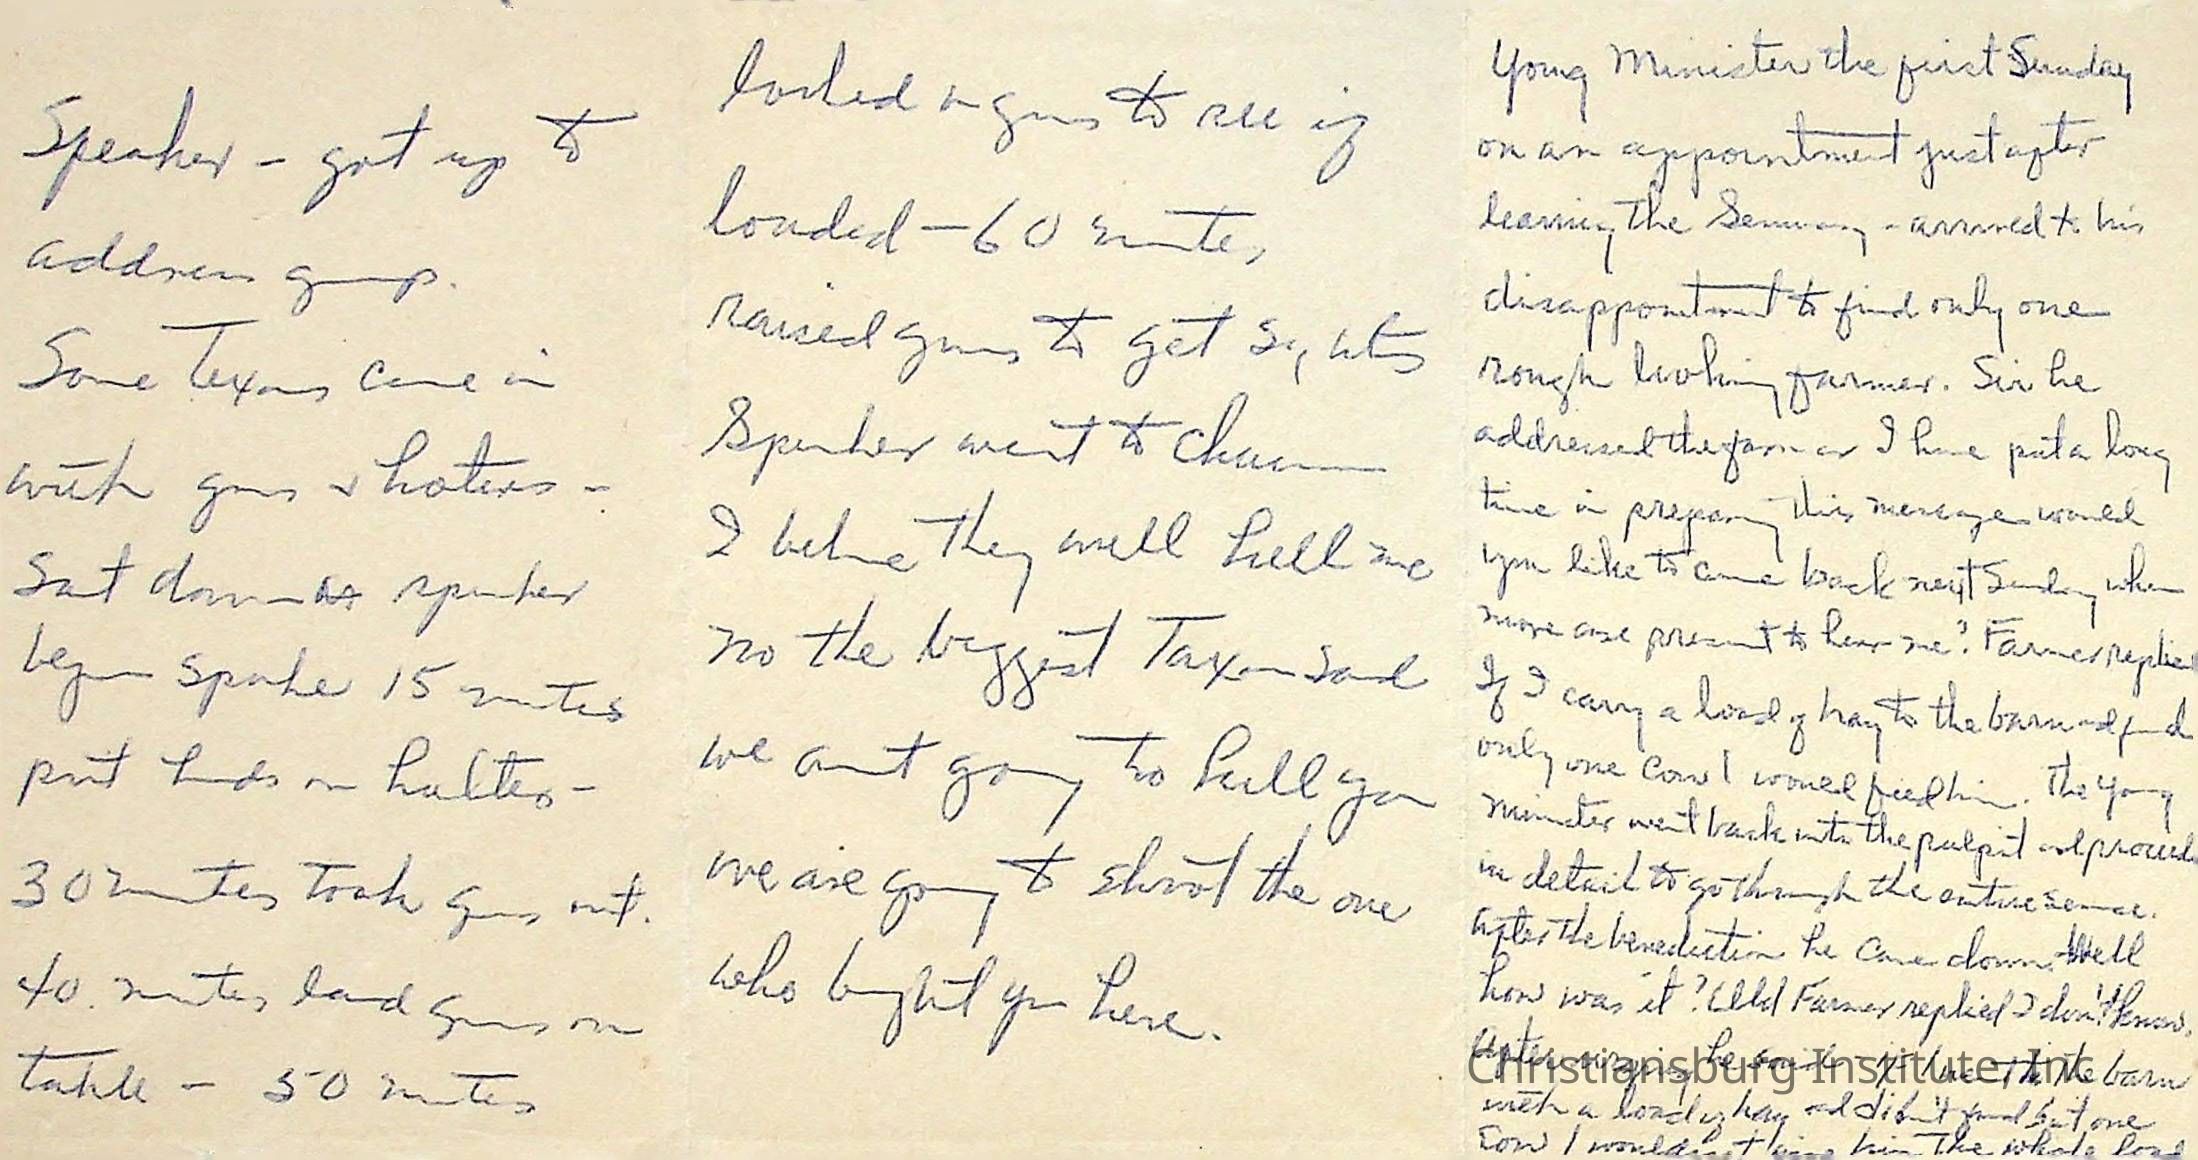 Speaker - got up to
address group.
Some Texans came in
with guns & holters -
Sat down as speaker
began spoke 15 minutes
put hands on holters -
30 minutes took guns out.
40 minutes laid guns on
table - 50 minutes
looked in guns to see if
loaded - 60 minutes,
raised guns to get sights
Speaker went to Chairman
I believe they will kill me
no the biggest Taxan said
we aint going to kill you
we are going to shoot the one
who bught you here.
Young Minister the first Sunday
on an appointment just after
leaving the Seminary - arrived to his
disappointment to find only one
rough looking farmer. Sir he
addressed the farmer I have put a long
time in preparing this message would
you like to come back next Sunday when
more are present to hear me? Farmer replied
If I carry a load of hay to the barn and find
only one cow I would feed him. The young
minister went back into the pulpit and proceeded
in detail to go through the entire service.
After the benediction he came down. Well
how was it? Old Farmer replied I don't know.
After he said if the barn
with a load of hay and didn't find but one
cow I wouldn't give him the whole load
Christiansburg Institute, Inc